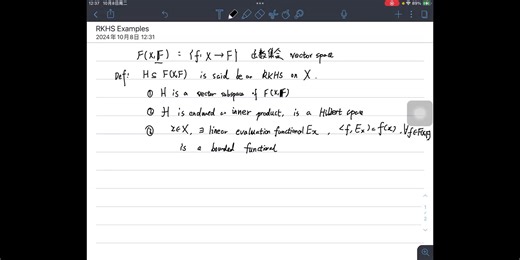 12:37 10月8日周二
89%
RKHS Examples
2024年10月8日 12:31
F(X,F) = {f: X→F} 函数集合 vector space
Def: H⊆F(X,F) is said be an RKHS on X.
① H is a vector subspace of F(X,F)
② H is endowed an inner product, is a Hilbert space
③ x∈X, ∃ linear evaluation functional Ex, <f, Ex>=f(x), ∀f∈F(X,F)
is a bounded functional